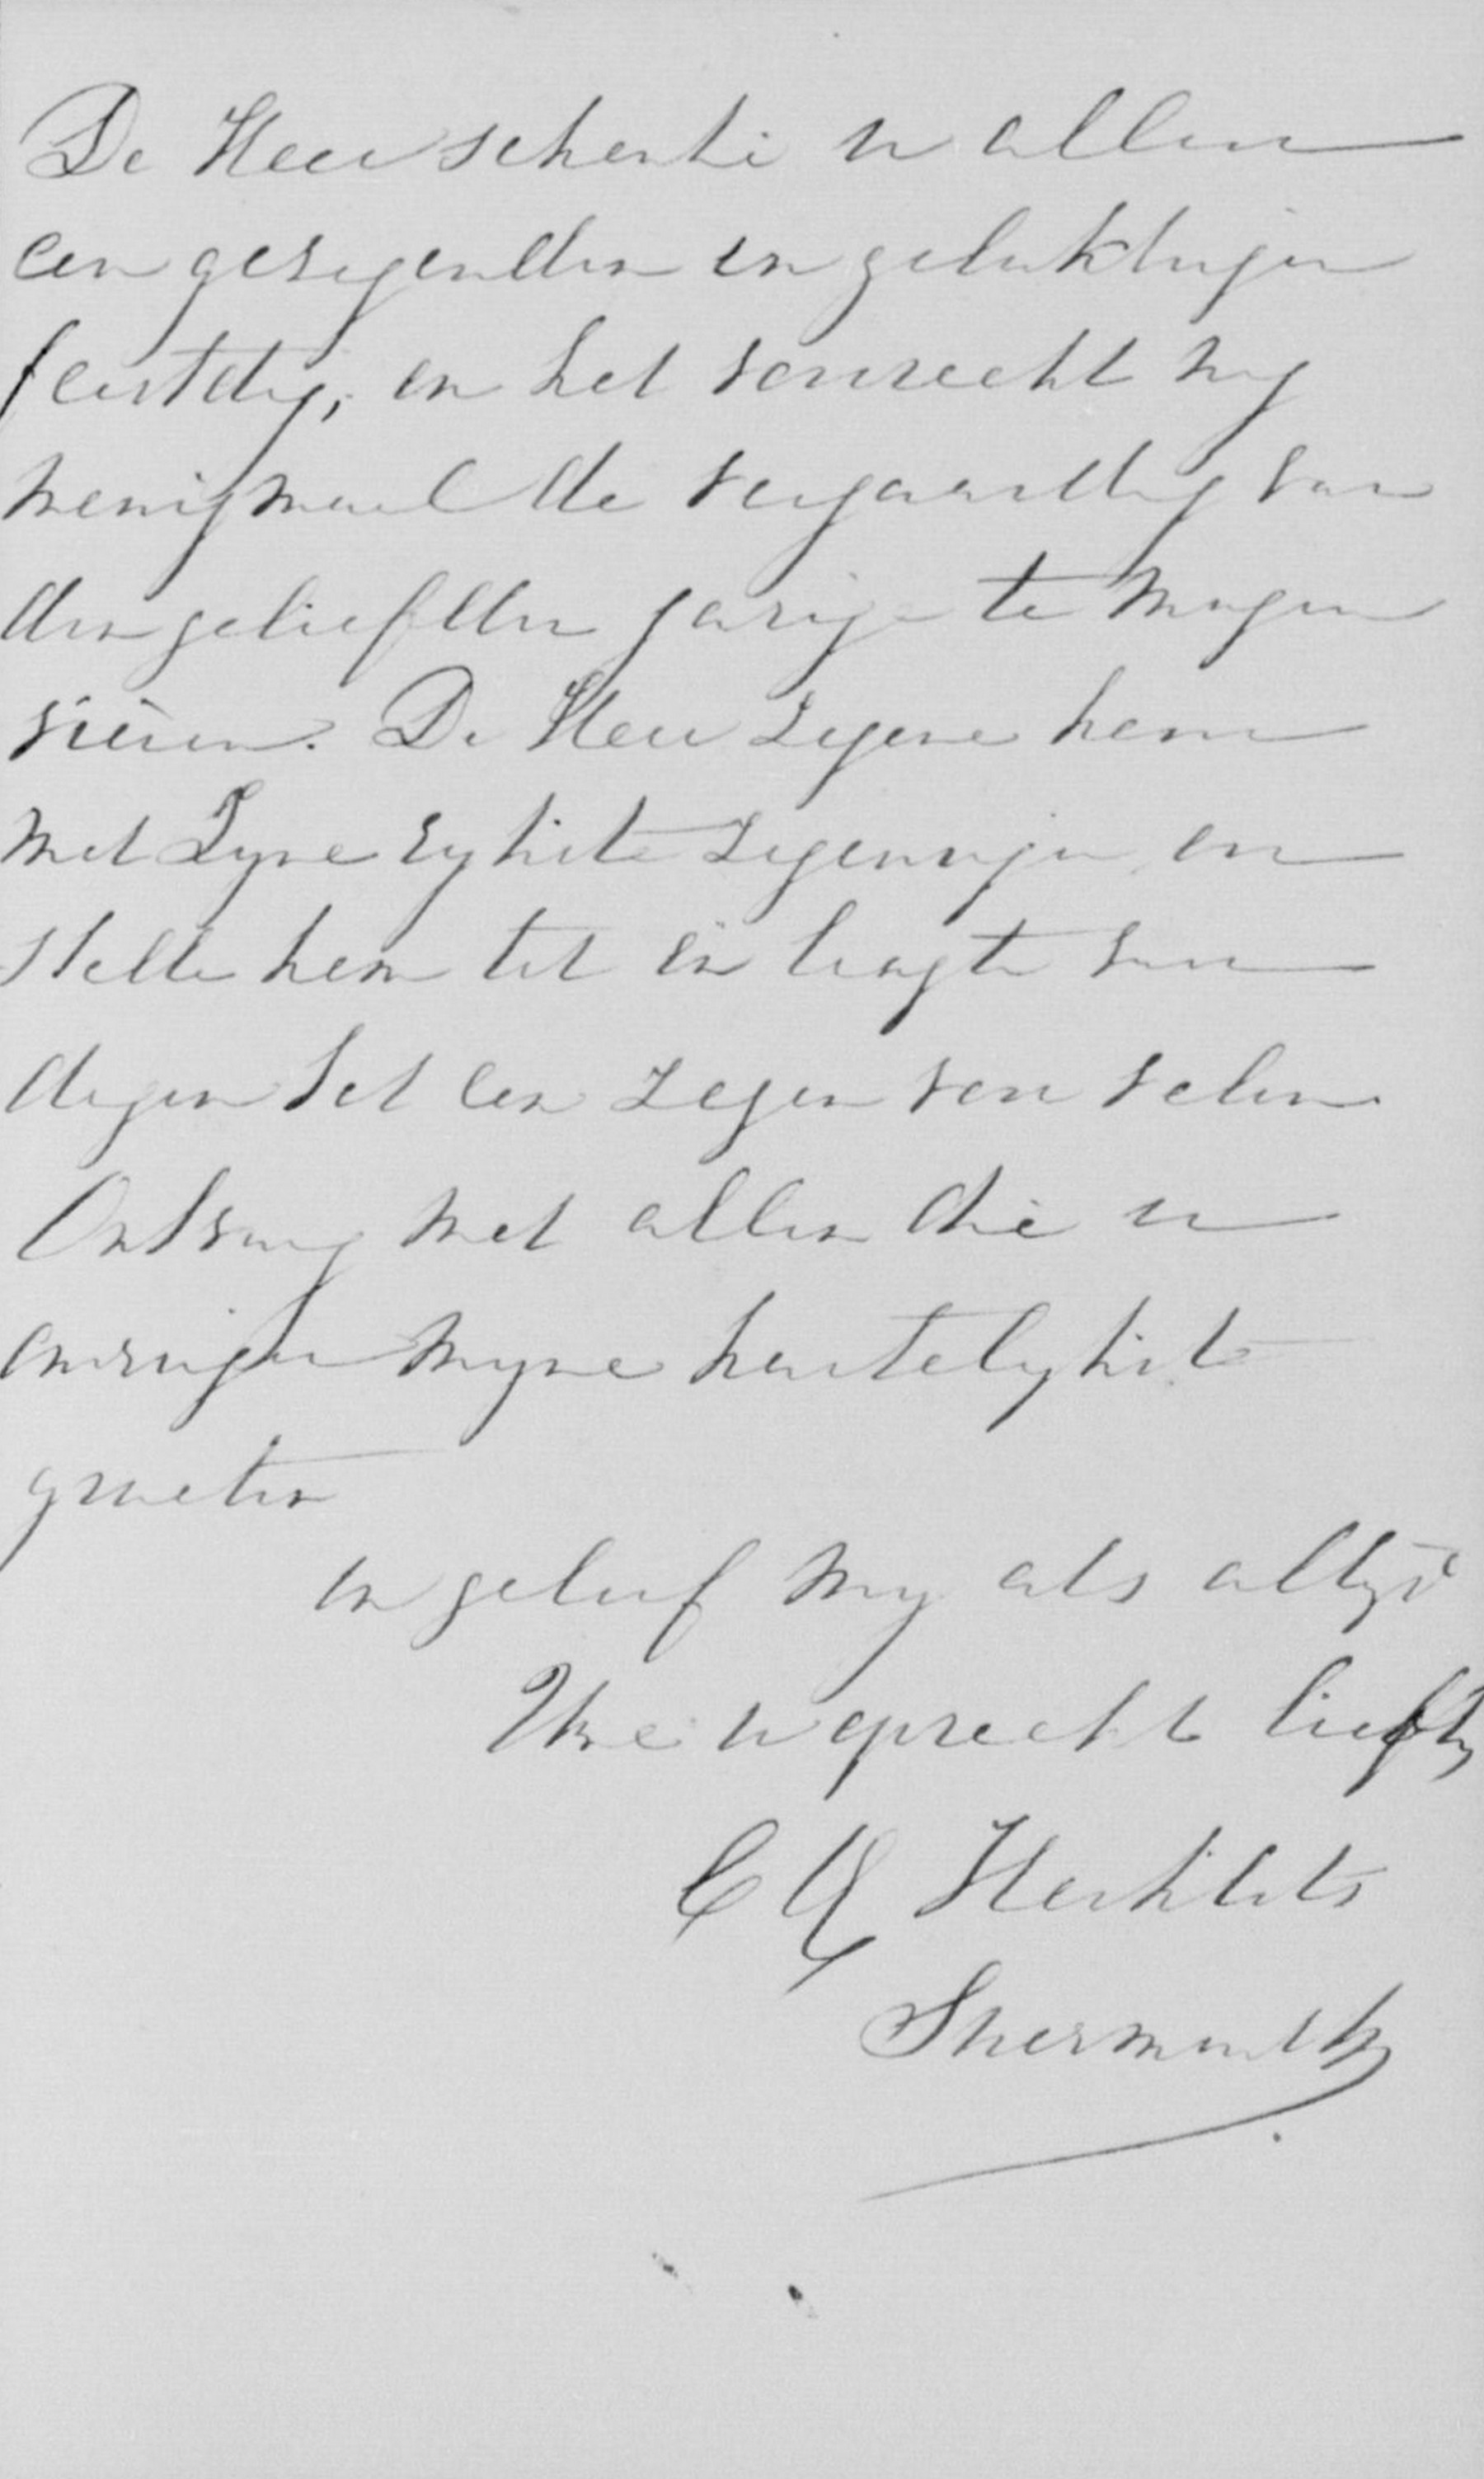 De Heer schenke u allen
een gezegenden en gelukkigen
feestdag, en het voorrecht nog
menigmaal de verjaardag van
den geliefden jarige te mogen
vieren. De Heer zegene hem
met Zyne rykste zegeningen en
stelle hem tot in lengte van
dagen tot een zegen voor velen.
Ontvang met allen die u
omringen myne hartelykste
groeten
en geloof my als altyd
Uwe u oprecht liefh
C